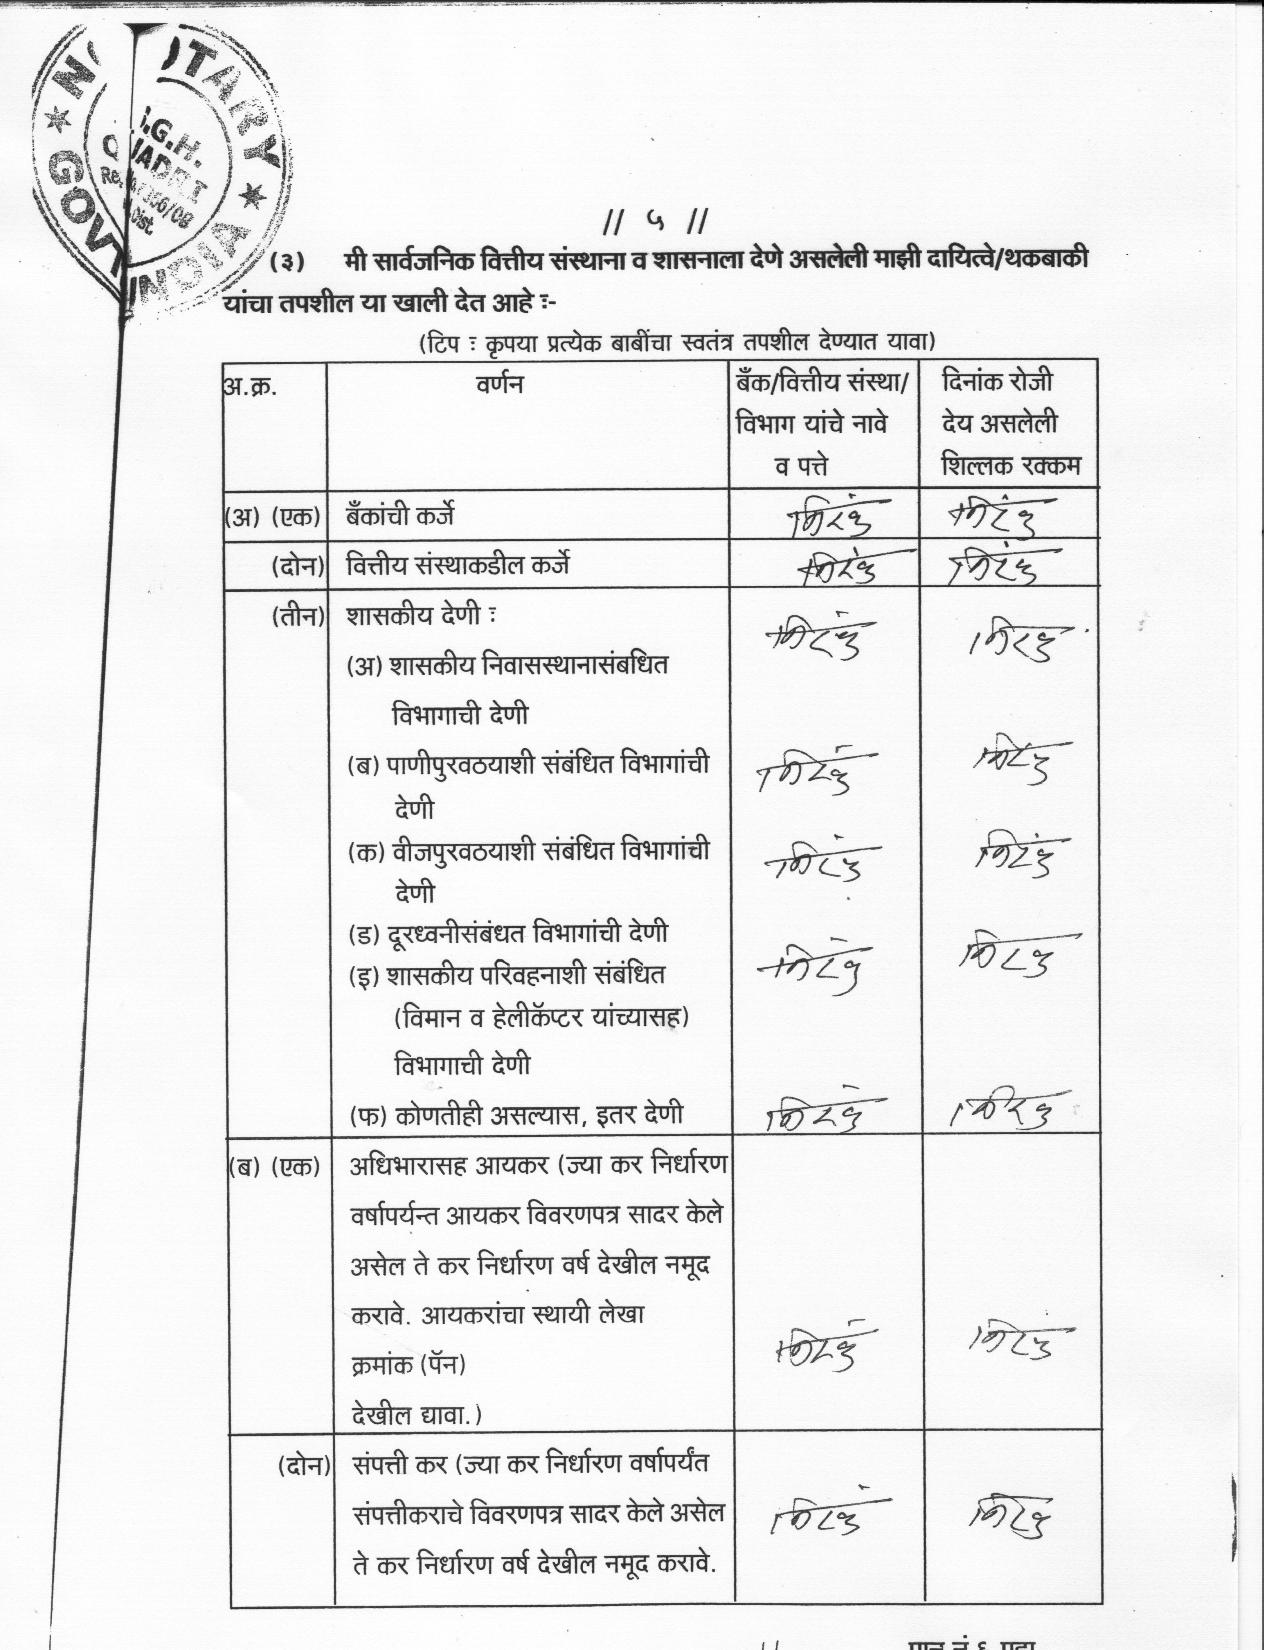 NOTARY
GOVT INDIA
// ५ //
(३) मी सार्वजनिक वित्तीय संस्थाना व शासनाला देणे असलेली माझी दायित्वे/थकबाकी
यांचा तपशील या खाली देत आहे ः-
(टिप ः कृपया प्रत्येक बाबींचा स्वतंत्र तपशील देण्यात यावा)
अ.क्र. वर्णन बँक/वित्तीय संस्था/ दिनांक रोजी
विभाग यांचे नावे देय असलेली
व पत्ते शिल्लक रक्कम
(अ) (एक) बँकांची कर्जे निरंक निरंक
(दोन) वित्तीय संस्थाकडील कर्जे निरंक निरंक
(तीन) शासकीय देणी ः निरंक निरंक
(अ) शासकीय निवासस्थानासंबधित
विभागाची देणी
(ब) पाणीपुरवठयाशी संबंधित विभागांची निरंक निरंक
देणी
(क) वीजपुरवठयाशी संबंधित विभागांची निरंक निरंक
देणी
(ड) दूरध्वनीसंबंधत विभागांची देणी निरंक निरंक
(इ) शासकीय परिवहनाशी संबंधित
(विमान व हेलीकॅप्टर यांच्यासह)
विभागाची देणी
(फ) कोणतीही असल्यास, इतर देणी निरंक निरंक
(ब) (एक) अधिभारासह आयकर (ज्या कर निर्धारण
वर्षापर्यन्त आयकर विवरणपत्र सादर केले
असेल ते कर निर्धारण वर्ष देखील नमूद
करावे. आयकरांचा स्थायी लेखा
क्रमांक (पॅन) निरंक निरंक
देखील द्यावा.)
(दोन) संपत्ती कर (ज्या कर निर्धारण वर्षापर्यंत
संपत्तीकराचे विवरणपत्र सादर केले असेल निरंक निरंक
ते कर निर्धारण वर्ष देखील नमूद करावे.